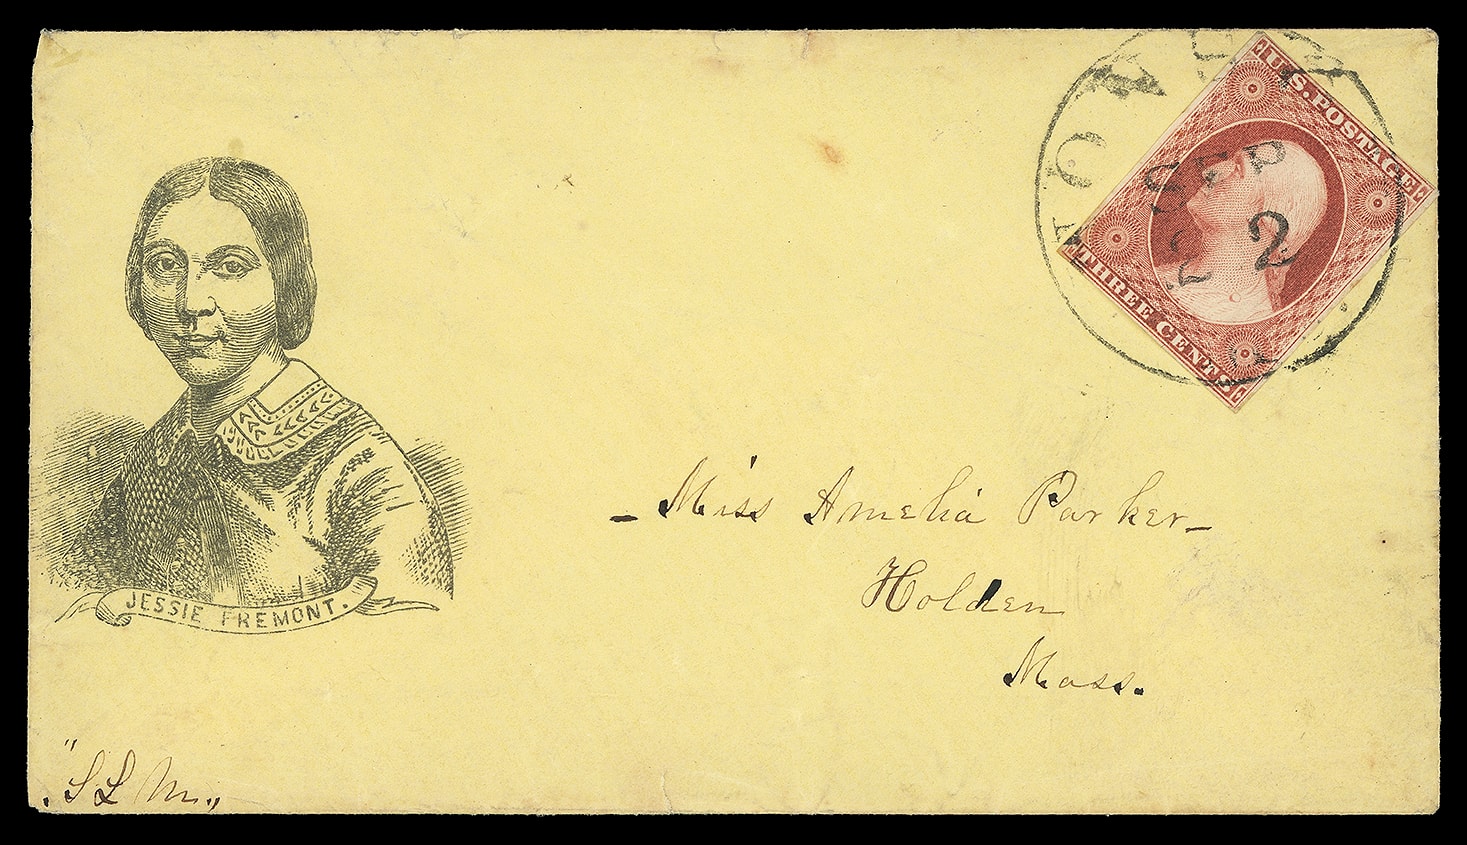 U.S. POSTAGE
SEP
2
THREE CENTS
– Miss Amelia Parker –
Holden
Mass.
JESSIE FREMONT.
"S L M.,,